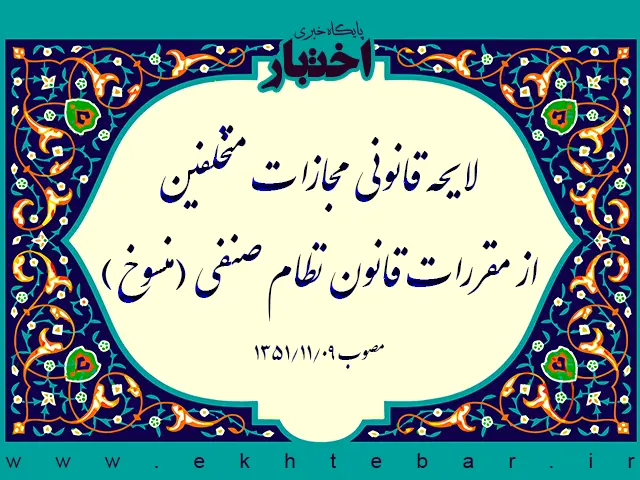 پایگاه خبری
اختبار
لایحه قانونی مجازات متخلفین
از مقررات قانون نظام صنفی (منسوخ)
مصوب ۱۳۵۱/۱۱/۰۹
www.ekhtebar.ir